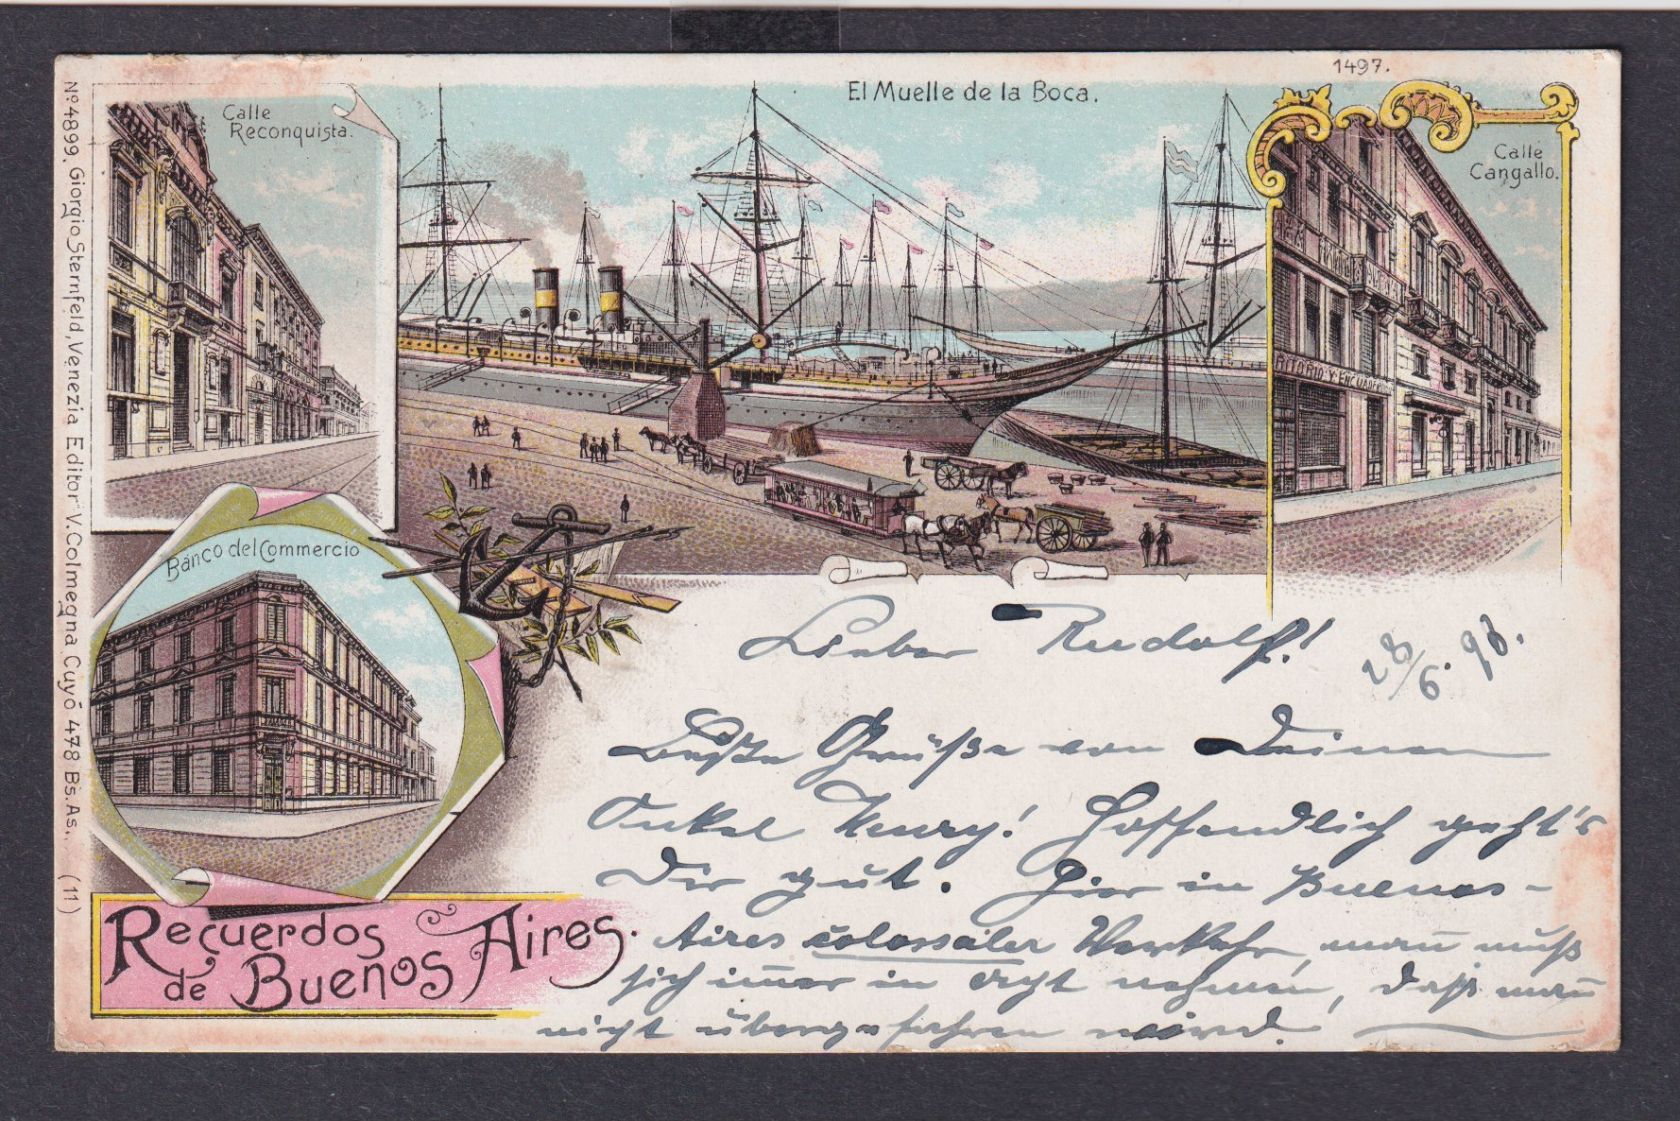 1497.
El Muelle de la Boca.
Calle
Reconquista.
Calle
Cangallo.
Banco del Commercio
Nº 4899. Giorgio Sternfeld, Venezia Editor V. Colmegna Cuyó 478 Bs. As. (11)
Recuerdos
de Buenos Aires.
ITORIO Y ENCUADER
Lieber Rudolf!
28/6. 98.
Beste Grüße von Deinem
Onkel Henry! Hoffendlich geht's
Dir gut. Hier in Buenos-
Aires colossaler Verkehr, man muß
sich immer in Acht nehmen, daß man
nicht übergefahren wird.